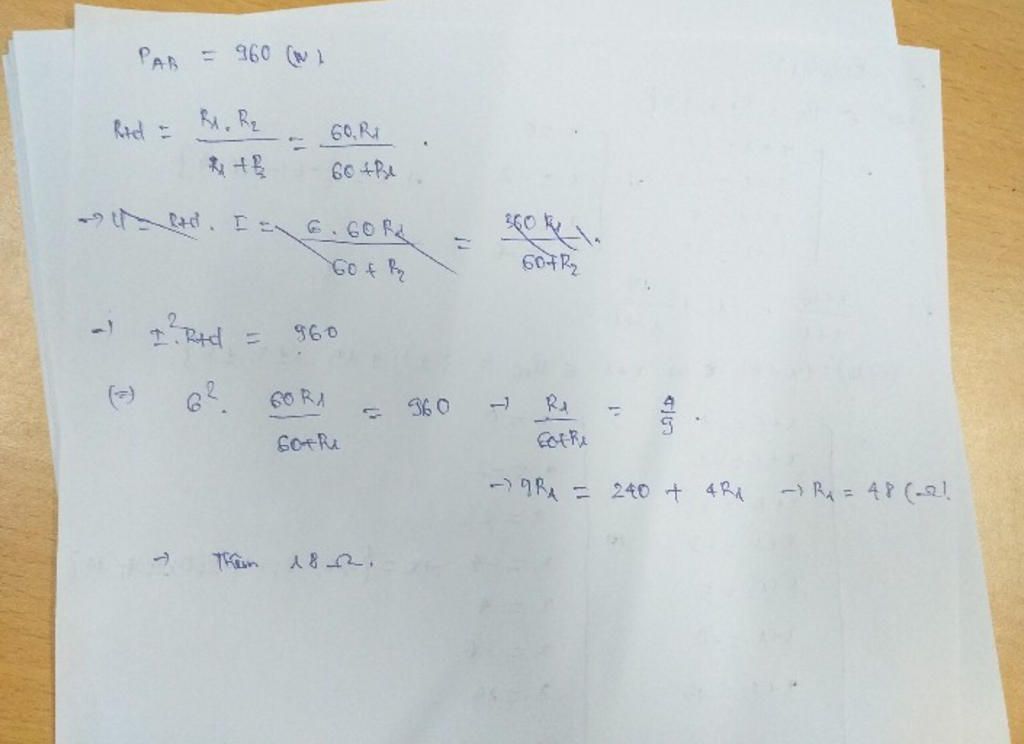 P_AB = 960 (W)
Rtđ = R1.R2 / R1+R2 = 60.R1 / 60+R1 .
→ U = Rtđ. I = 6.60R1 / 60+R2 = 360R1 / 60+R2 .
→ I².Rtđ = 960
(=) 6². 60R1 / 60+R1 = 960 → R1 / 60+R1 = 4/9 .
→ 9R1 = 240 + 4R1 → R1 = 48 (Ω).
→ Thêm 18 Ω.